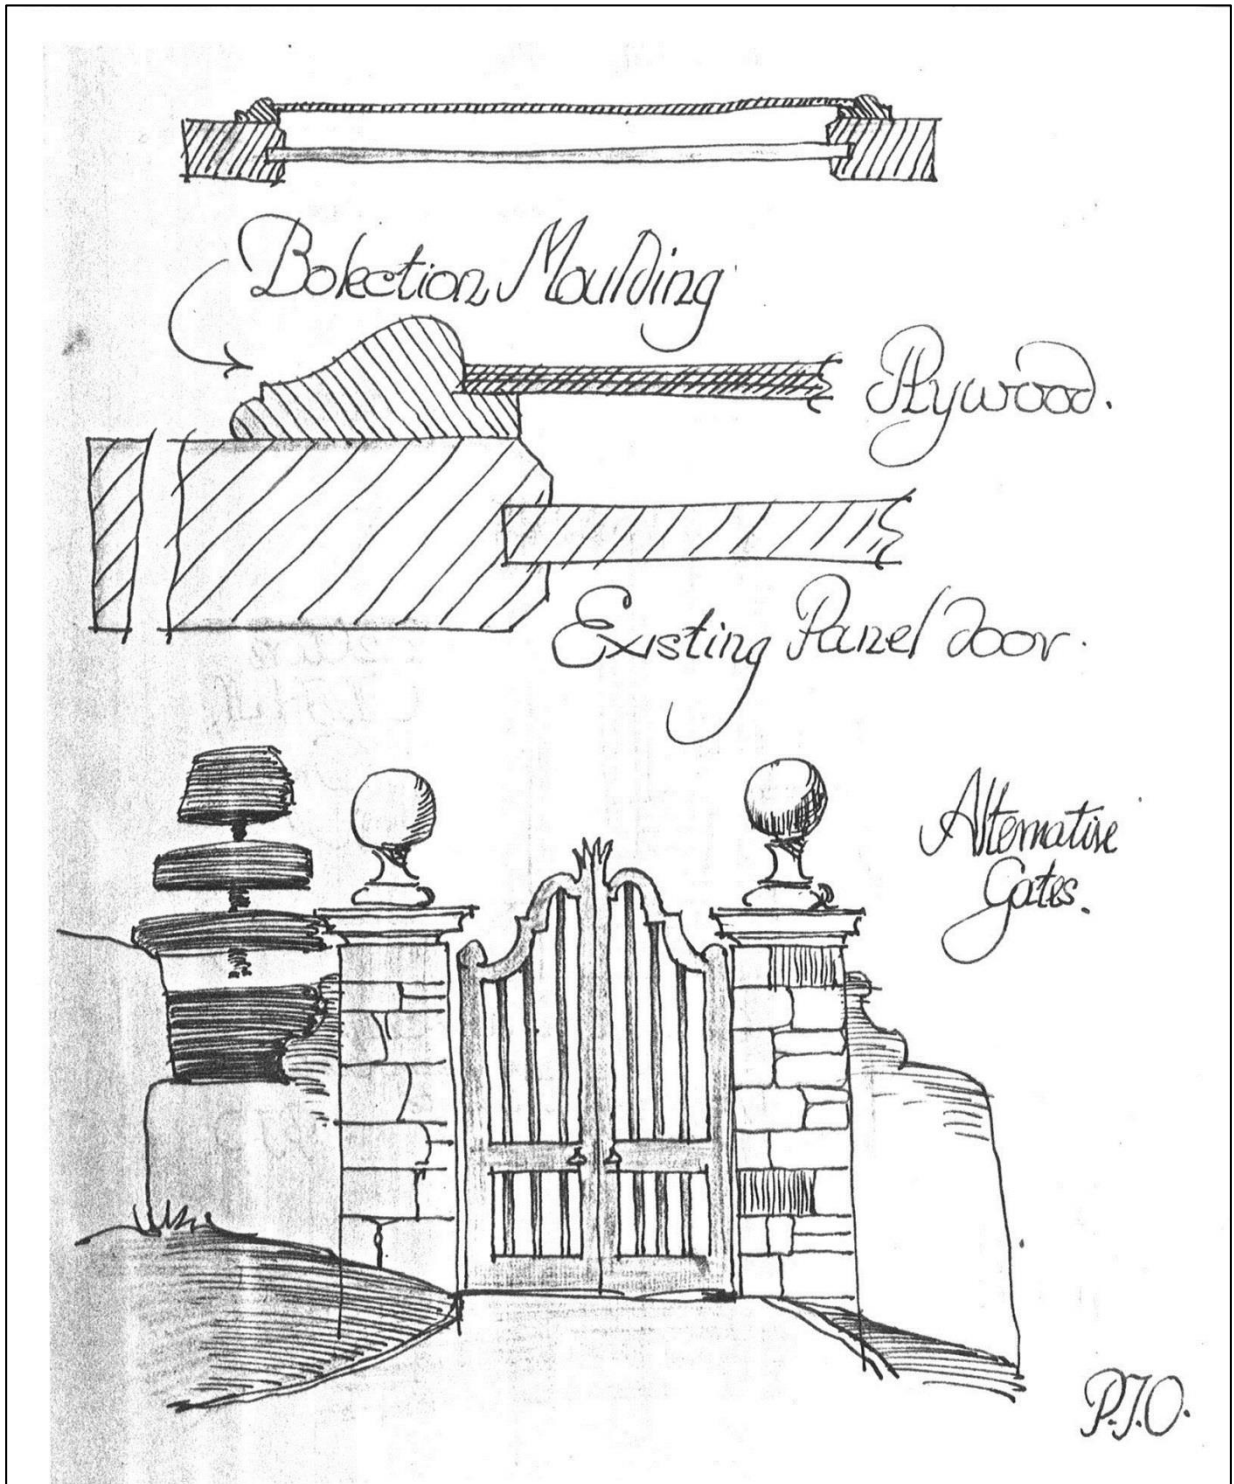 Bolection Moulding
Plywood.
Existing Panel Door.
Alternative
Gates.
P.J.O.